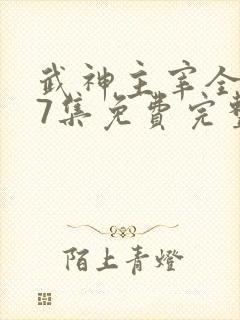 武神主宰全
7集免費完整
陌上青燈